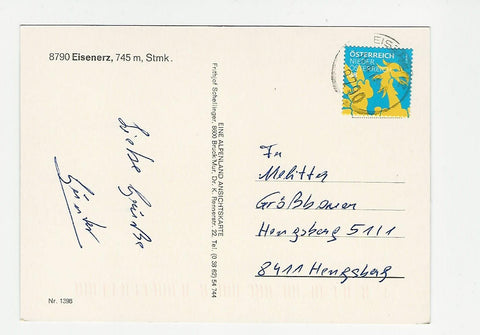 8790 Eisenerz, 745 m, Stmk.
Liebe Grüße
Günter
EINE ALPENLAND ANSICHTSKARTE
Frithjof Schellinger, 8600 Bruck/Mur, Dr. K. Rennerstr. 22, Tel. (0 38 62) 54 744
ÖSTERREICH
NIEDER
ÖSTERREICH
EISE
8790
Melitta
Hengsberg 5111
8411 Hengsberg
Nr. 1396